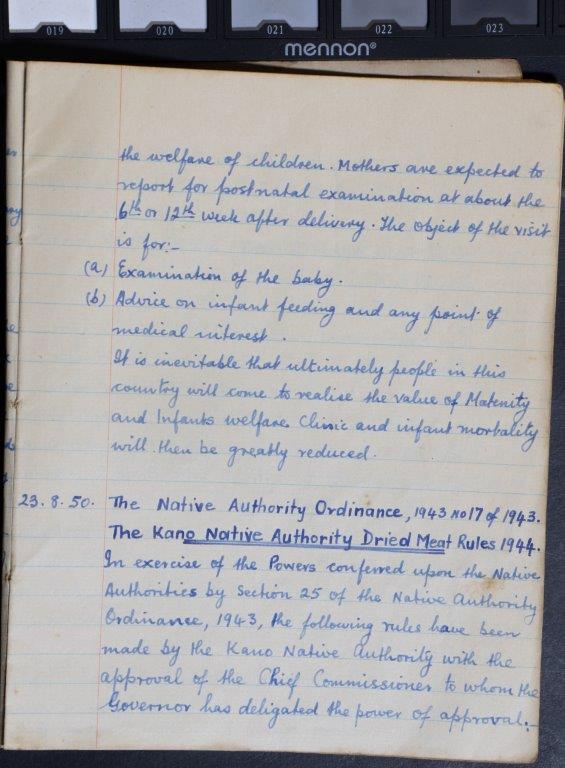 019 020 021 022 023
mennon®
the welfare of children. Mothers are expected to
report for postnatal examination at about the
6th or 12th week after delivery. The object of the visit
is for:-
(a) Examination of the baby.
(b) Advice on infant feeding and any point of
medical interest.
It is inevitable that ultimately people in this
country will come to realise the value of Matenity
and Infants welfare Clinic and infant mortality
will then be greatly reduced.
23.8.50. The Native Authority Ordinance, 1943 No 17 of 1943.
The Kano Native Authority Dried Meat Rules 1944.
In exercise of the Powers conferred upon the Native
Authorities by Section 25 of the Native Authority
Ordinance, 1943, the following rules have been
made by the Kano Native Authority with the
approval of the Chief Commissioner to whom the
Governor has deligated the power of approval:-